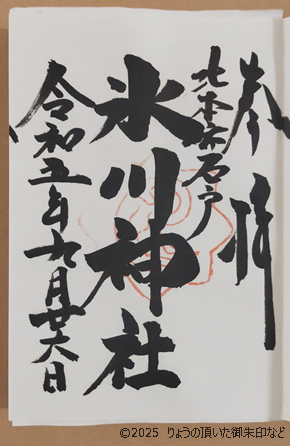 奉拝
北本市石戸
氷川神社
令和五年九月廿六日
©2025 りょうの頂いた御朱印など